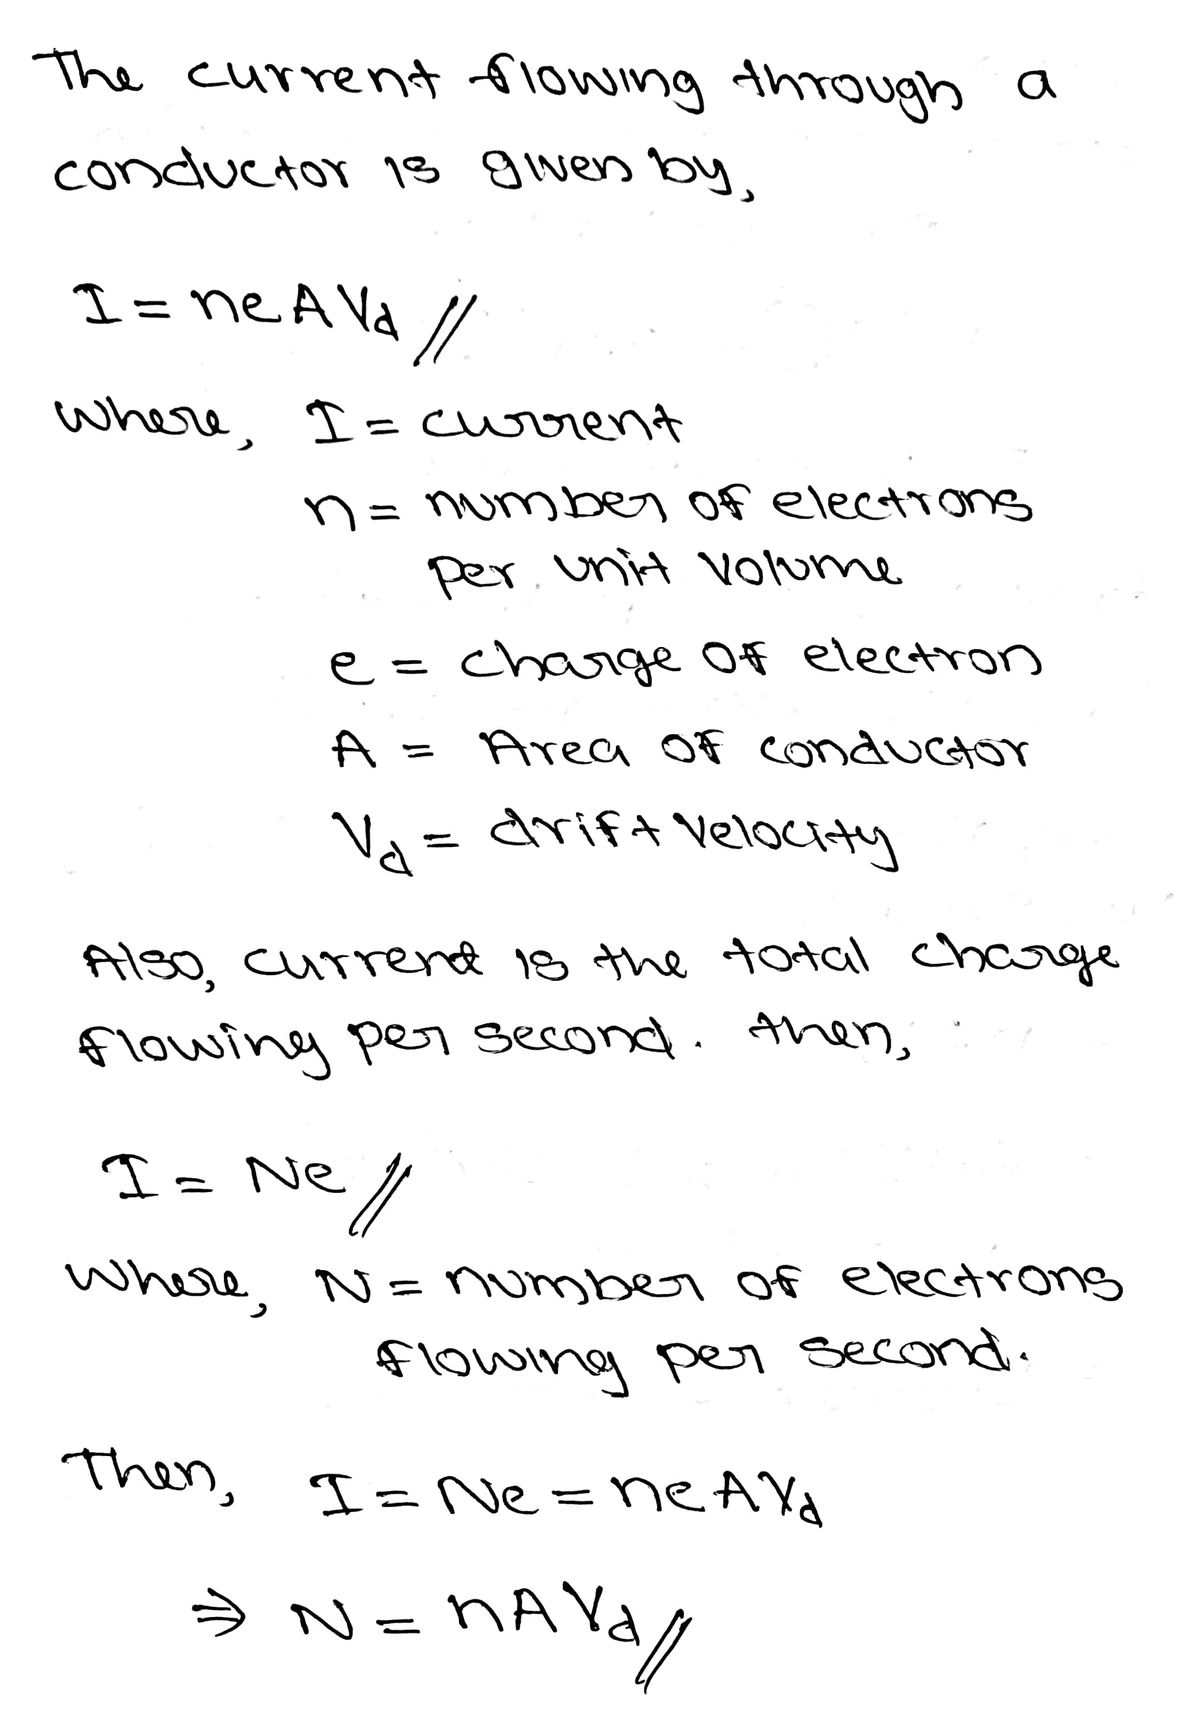 The current flowing through a
conductor is given by,
I = neAVd //
Where, I = current
n = number of electrons
per unit volume
e = charge of electron
A = Area of conductor
Vd = drift velocity
Also, current is the total charge
flowing per second. then,
I = Ne //
Where, N = number of electrons
flowing per second.
Then, I = Ne = neAVd
⇒ N = nAVd //